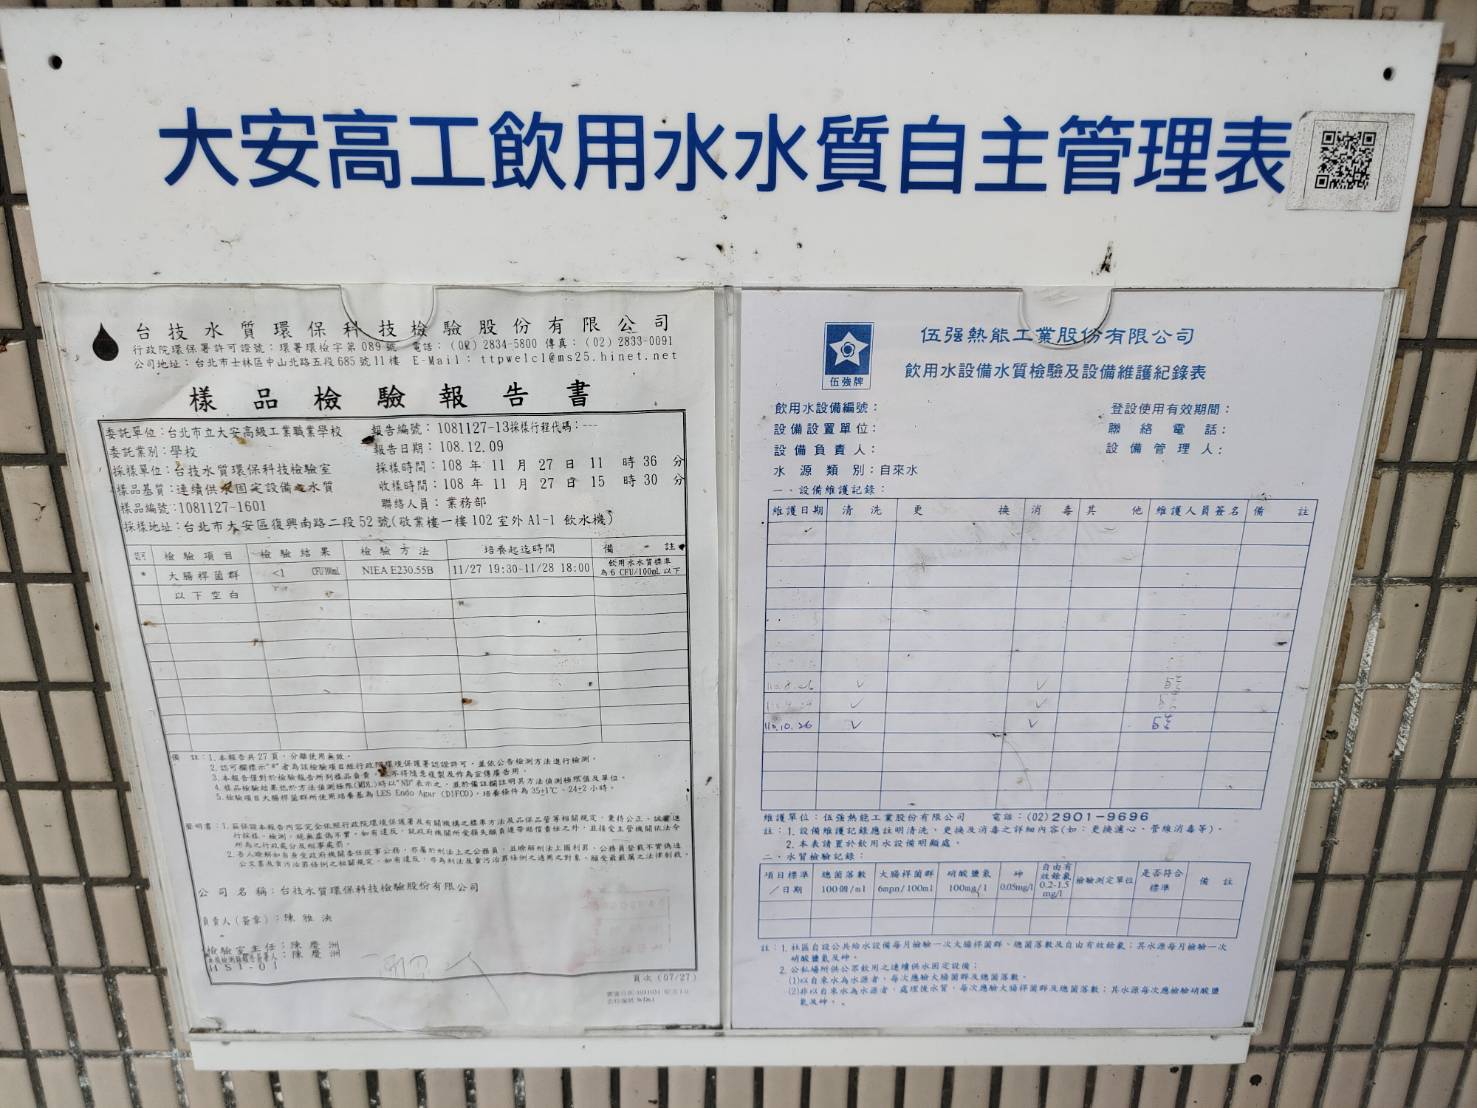 大安高工飲用水水質自主管理表
台技水質環保科技檢驗股份有限公司
行政院環保署許可證號：環署環檢字第089號 電話：(02) 2834-5800 傳真：(02) 2833-0091
公司地址：台北市士林區中山北路五段685號11樓 E-Mail：ttpwelcl@ms25.hinet.net
樣品檢驗報告書
委託單位：台北市立大安高級工業職業學校 報告編號：1081127-13採樣行程代碼：---
委託業別：學校 報告日期：108.12.09
採樣單位：台技水質環保科技檢驗室 採樣時間：108 年 11 月 27 日 11 時 36 分
樣品基質：連續供水固定設備之水質 收樣時間：108 年 11 月 27 日 15 時 30 分
樣品編號：1081127-1601 聯絡人員：業務部
採樣地址：台北市大安區復興南路二段52號(敬業樓一樓102室外A1-1 飲水機)
檢驗項目 檢驗結果 檢驗方法 培養起迄時間 備註
* 大腸桿菌群 <1 CFU/100mL NIEA E230.55B 11/27 19:30-11/28 18:00 飲用水水質標準為6 CFU/100mL以下
以下空白
備註：1.本報告共27頁，分離使用無效。
2.認可欄標示"*"者為該檢驗項目經行政院環境保護署認證許可，並依公告檢測方法進行檢測。
3.本報告僅對於檢驗報告所列樣品負責，並不得隨意複製及作為宣傳廣告用。
4.樣品檢驗結果低於方法偵測極限(MDL)時以"ND"表示之，並於備註欄註明其方法偵測極限值及單位。
5.檢驗項目大腸桿菌群所使用培養基為LES Endo Agar (DIFCO)，培養條件為35±1℃、24±2小時。
公司名稱：台技水質環保科技檢驗股份有限公司
負責人(簽章)：陳雅泱
檢驗室主任：陳慶洲
陳慶洲
MSI-01
頁次 (07/27)
伍強牌
伍强熱能工業股份有限公司
飲用水設備水質檢驗及設備維護紀錄表
飲用水設備編號： 登設使用有效期間：
設備設置單位： 聯絡電話：
設備負責人： 設備管理人：
水源類別：自來水
一、設備維護記錄：
維護日期 清洗 更換 消毒 其他 維護人員簽名 備註
110.10.26 ✓ ✓
維護單位：伍强熱能工業股份有限公司 電話：(02)2901-9696
註：1. 設備維護記錄應註明清洗、更換及消毒之詳細內容(如：更換濾心、管線消毒等)。
2. 本表請置於飲用水設備明顯處。
二、水質檢驗記錄：
項目標準／日期 總菌落數 100個/ml 大腸桿菌群 6mpn/100ml 硝酸鹽氮 100mg/l 砷 0.05mg/l 自由有效餘氯 0.2-1.5 mg/l 檢驗測定單位 是否符合標準 備註
註：1. 社區自設公共給水設備每月檢驗一次大腸桿菌群、總菌落數及自由有效餘氯；其水源每月檢驗一次
硝酸鹽氮及砷。
2. 公私場所供公眾飲用之連續供水固定設備：
(1)以自來水為水源者，每次應驗大腸菌群及總菌落數。
(2)非以自來水為水源者，處理後水質，每次應驗大腸桿菌群及總菌落數；其水源每次應檢驗硝酸鹽
氮及砷。。